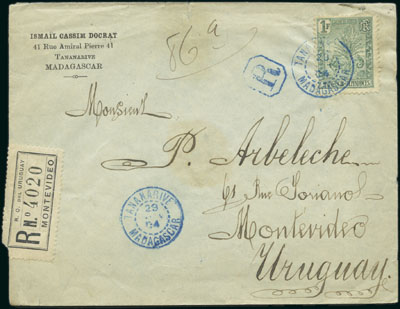 ISMAIL CASSIM DOCRAT
41 Rue Amiral Pierre 41
TANANARIVE
MADAGASCAR
86 a
R
1F
TANANARIVE
MADAGASCAR
Monsieur
P. Arbeleche
61 Rue Soriano
Montevideo
Uruguay
R. O. DEL URUGUAY
R No. 4020
MONTEVIDEO
TANANARIVE
29
04
MADAGASCAR